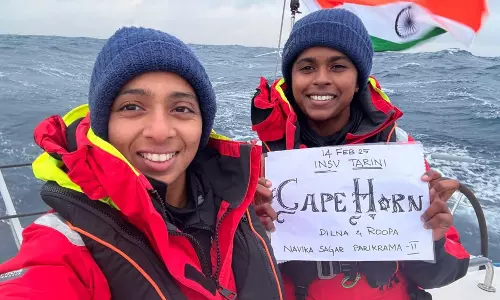 14 FEB 25
INSV TARINI
CAPE HORN
DILNA & ROOPA
NAVIKA SAGAR PARIKRAMA - II